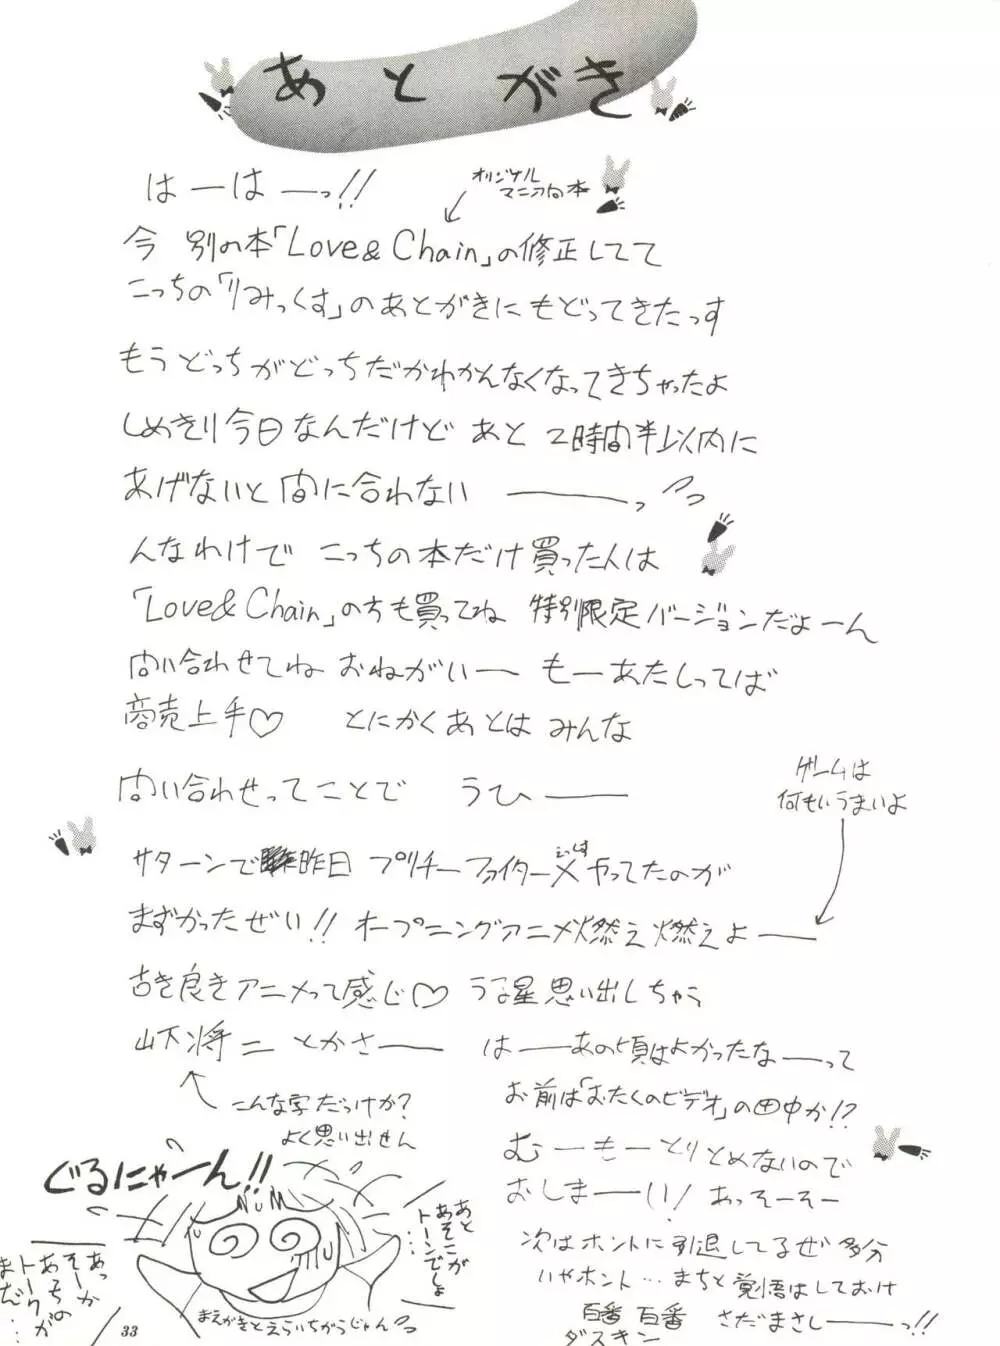 あとがき
はーはーっ!!
オリジナル
マニア向本
今 別の本「Love& Chain」の修正してて
こっちの「りみっくす」のあとがきにもどってきたっす
もうどっちがどっちだかわかんなくなってきちゃったよ
しめきり今日なんだけど あと 2時間半以内に
あげないと間に合れない ――っ
んなわけで こっちの本だけ買った人は
「Love& Chain」の方も買ってね 特別限定バージョンだよーん
問い合わせてね おねがいー もーあたしってば
商売上手♡ とにかくあとは みんな
問い合わせってことで うひ――
ゲームは
何もいうまいよ
サターンで昨日 プリチーファイターX やってたのが
まずかったぜい!! オープニングアニメ燃え燃えよ――
古き良きアニメって感じ♡ うる星思い出しちゃう
山下将二 とかさ―― は――あの頃はよかったな――って
こんな字だっけか?
よく思い出せん
お前は「おたくのビデオ」の田中か!?
むーもーとりとめないので
おしま――い! あっそーそー
次はホントに引退してるぜ 多分
いやホント… まぢと覚悟はしておけ
百番 百番 さだまさし――っ!!
ダスキン
ぐるにゃーん!!
NuM
あと
あそこが
トーンでしょ
……
あっか
そーか
あっちの
トークが
まだ…
まえがきとえらいちがうじゃん
33